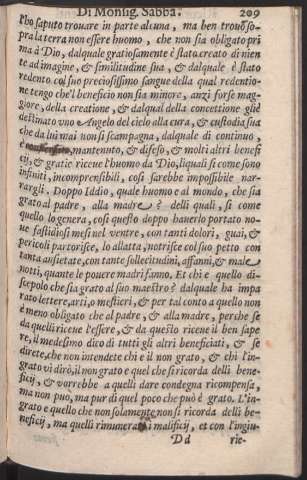 Di Monsig. Sabba. 209
l'ho saputo trouare in parte alcuna, ma ben trouo so-
pra la terra non essere huomo, che non sia obligato pri
ma à Dio, dalquale gratiosamente è stato creato di nien
te ad imagine, & similitudine sua, & dalquale è stato
redento col suo preciosissimo sangue della qual redentio-
ne tengo che'l beneficio non sia minore, anzi forse mag-
giore, della creatione, & dalqual della concettione glie
destinato vno Angelo del cielo alla cura, & custodia sua
che da lui mai non si scampagna, dalquale di continuo,
è mantenuto, & difeso, & molti altri benefi
cij, & gratie riceue l'huomo da Dio, liquali si come sono
infiniti, incomprensibili, cosi sarebbe impossibile nar-
rargli. Doppo Iddio, quale huomo e al mondo, che sia
grato al padre, alla madre? delli quali, si come
quello lo genera, cosi questo doppo hauerlo portato no-
ue fastidiosi mesi nel ventre, con tanti dolori, guai, &
pericoli partorisce, lo allatta, notrisce col suo petto con
tanta ansietate, con tante sollecitudini, affanni, & male
notti, quante le pouere madri fanno. Et chi e quello di-
scepolo che sia grato al suo maestro? dalquale ha impa
rato lettere, arti, o mestieri, & per tal conto a quello non
è meno obligato che al padre, & alla madre, perche se
da quelli riceue l'essere, & da questo riceue il ben sape
re, il medesimo dico di tutti gli altri beneficiati, & se
direte, che non intendete chi e il non grato, & chi l'in-
grato vi dirò, il non grato e quel che si ricorda delli bene-
ficij, & vorrebbe a quelli dare condegna ricompensa,
ma non puo, ma pur di quel poco che può è grato. L'in-
grato e quello che non solamente non si ricorda delli be-
neficij, ma quelli rimunera i malificij, et con l'ingiu-
Dd rie-